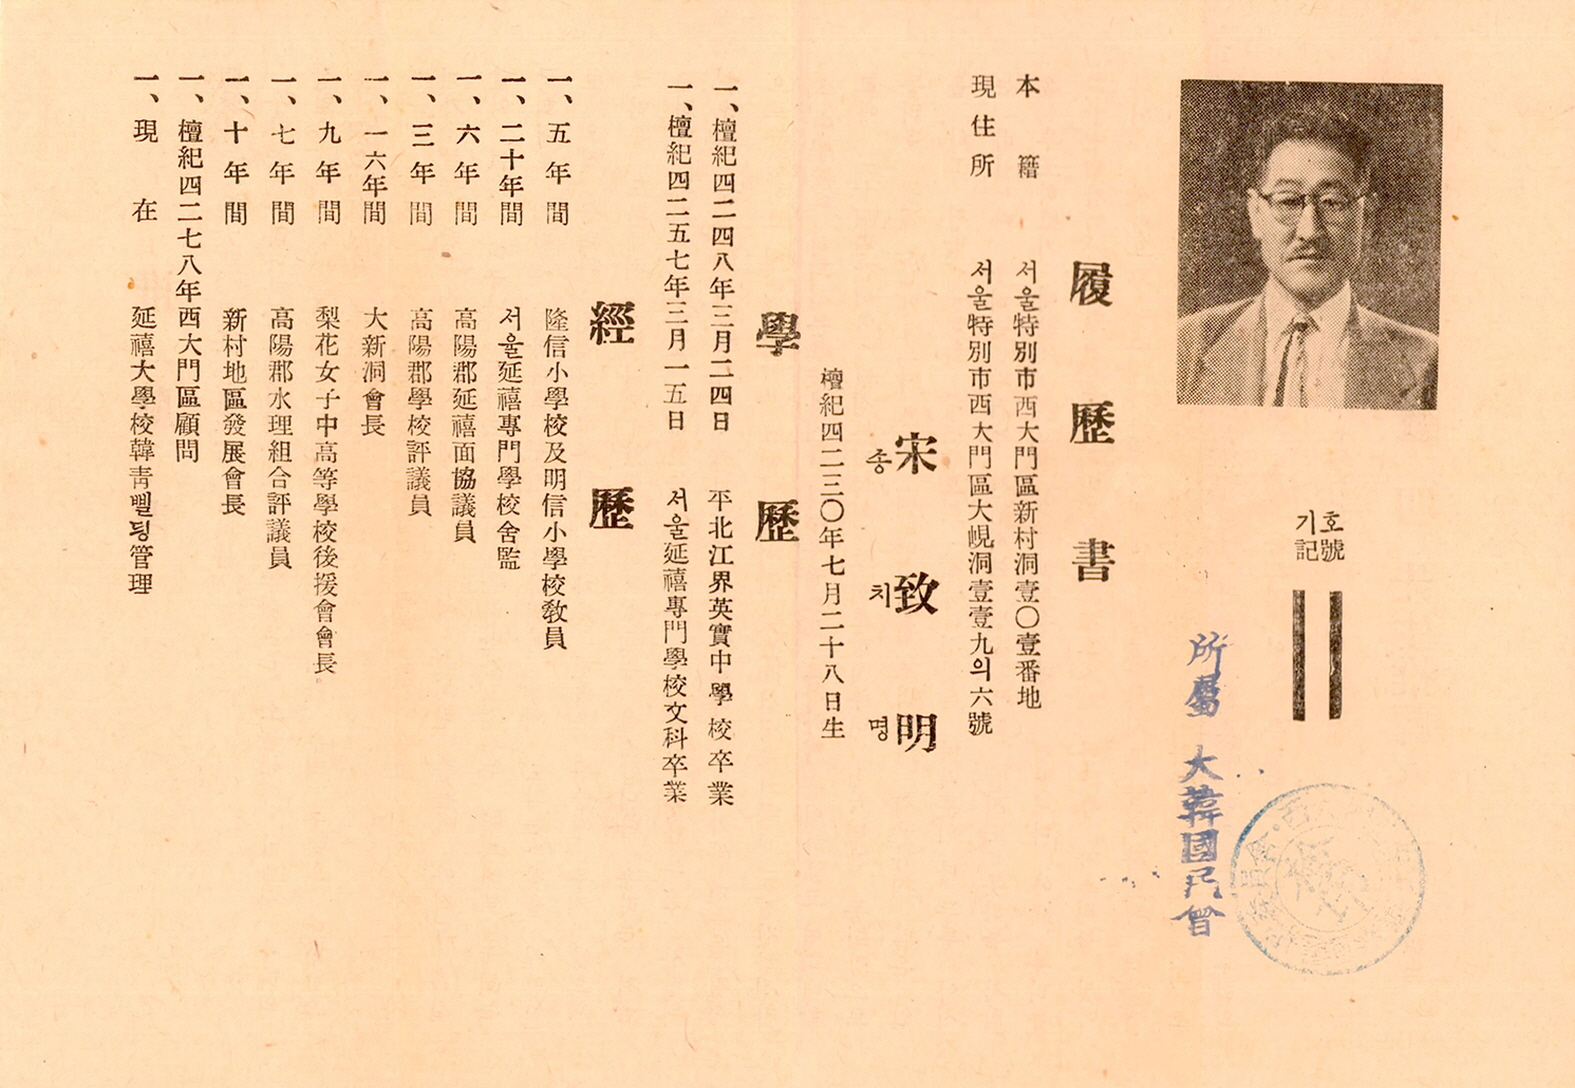 기호
記號
II
所屬 大韓國民會
履歷書
本籍 서울特別市西大門區新村洞壹〇壹番地
現住所 서울特別市西大門區大峴洞壹壹九의六號
宋致明
송치명
檀紀四二三〇年七月二十八日生
學歷
一、檀紀四二四八年三月二四日 平北江界英實中學校卒業
一、檀紀四二五七年三月一五日 서울延禧專門學校文科卒業
經歷
一、五年間 隆信小學校及明信小學校敎員
一、二十年間 서울延禧專門學校舍監
一、六年間 高陽郡延禧面協議員
一、三年間 高陽郡學校評議員
一、一六年間 大新洞會長
一、九年間 梨花女子中高等學校後援會會長
一、七年間 高陽郡水理組合評議員
一、十年間 新村地區發展會長
一、檀紀四二七八年西大門區顧問
一、現在 延禧大學校韓靑삘딍管理